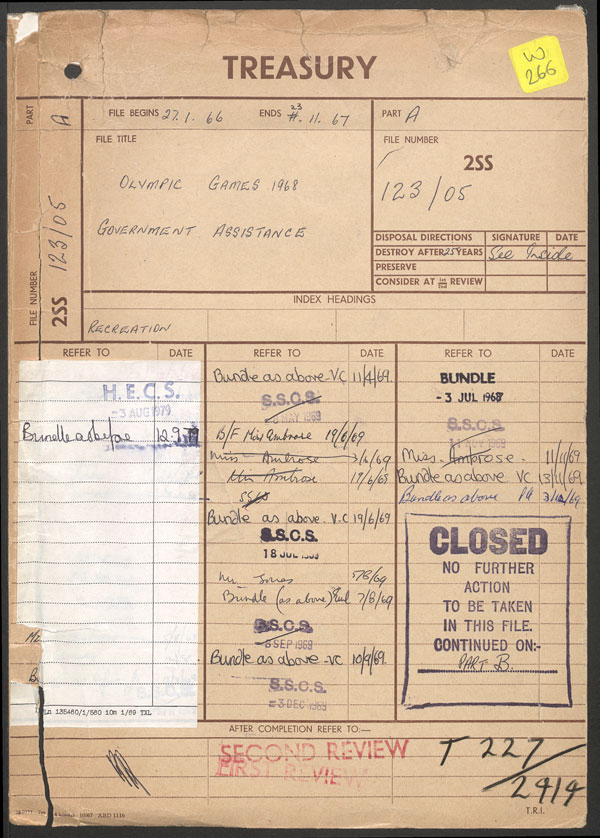 W
266
TREASURY
PART A
FILE BEGINS 27.1.66 ENDS 23.11.67
PART A
FILE TITLE
FILE NUMBER
2SS
OLYMPIC GAMES 1968
123/05
GOVERNMENT ASSISTANCE
DISPOSAL DIRECTIONS SIGNATURE DATE
DESTROY AFTER 25 YEARS See Inside
PRESERVE
CONSIDER AT 1st 2nd REVIEW
FILE NUMBER 2SS 123/05
INDEX HEADINGS
RECREATION
REFER TO DATE
H.E.C.S.
-3 AUG 1979
Bundle as before 12.9.79
Ln 135460/1/560 10m 1/69 TXL
REFER TO DATE
Bundle as above VC 11/4/69.
S.S.C.S.
MAY 1969
B/F Miss Ambrose 19/6/69
Miss Ambrose 3/6/69
Miss Ambrose 17/6/69
SSCS
Bundle as above V.C 19/6/69
S.S.C.S.
18 JUL 1969
Mr Jones 5/8/69
Bundle (as above) 7/8/69
S.S.C.S.
SEP 1969
Bundle as above VC 10/9/69.
S.S.C.S.
-3 DEC 1969
REFER TO DATE
BUNDLE
-3 JUL 1968
S.S.C.S.
NOV 1969
Miss Ambrose. 11/11/69
Bundle as above VC 13/11/69
Bundle as above 3/12/69
CLOSED
NO FURTHER
ACTION
TO BE TAKEN
IN THIS FILE.
CONTINUED ON:-
PART B.
AFTER COMPLETION REFER TO:—
SECOND REVIEW
FIRST REVIEW
T 227/2414
T.R.I.